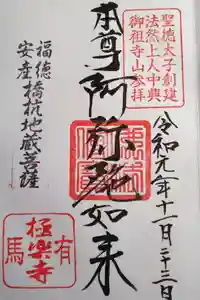 聖徳太子創建
法然上人中興
御祖寺山参拝
令和元年十一月二十三日
本尊阿弥陀如来
福徳
安産橋杭地蔵菩薩
有馬
極楽寺